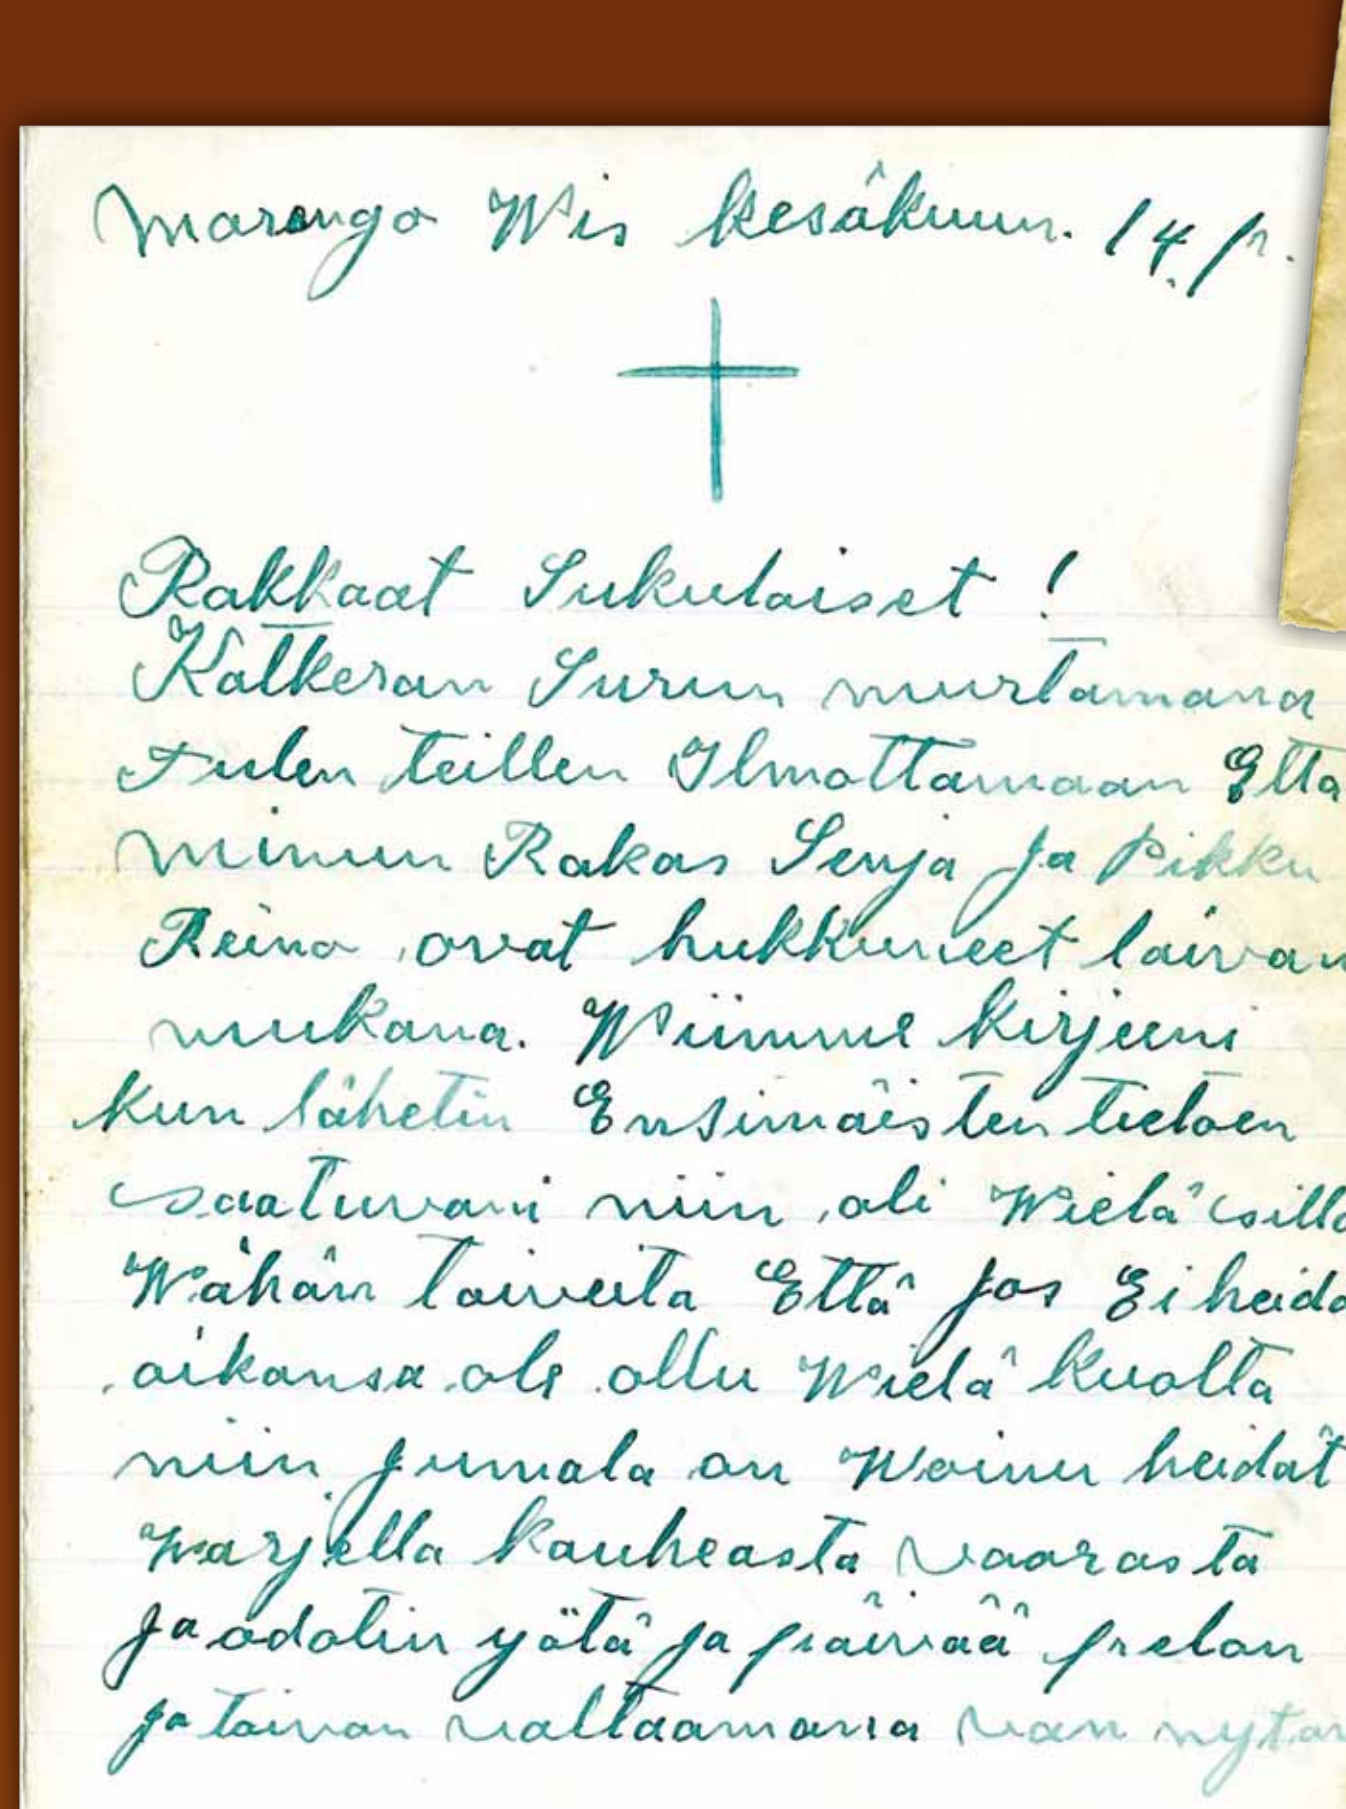 Marengo Wis kesäkuun. 14. p.
Rakkaat Sukulaiset!
Katkeran Surun murtamana
Tulen teillen Ilmottamaan Että
minun Rakas Senja ja Pikku
Reino ovat hukkuneet laivan
mukana. Wiimme kirjeeni
kun lähetin Ensimäisten tietoen
saatuvani niin oli Wielä silla
Wähän toiveita Että jos Ei heidä
aikansa ole ollu Wielä kuolta
niin jumala on Woinu heidät
Warjella kauheasta vaarasta
ja odotin yötä ja päivää pelon
ja toivon valtaamana van nyt on